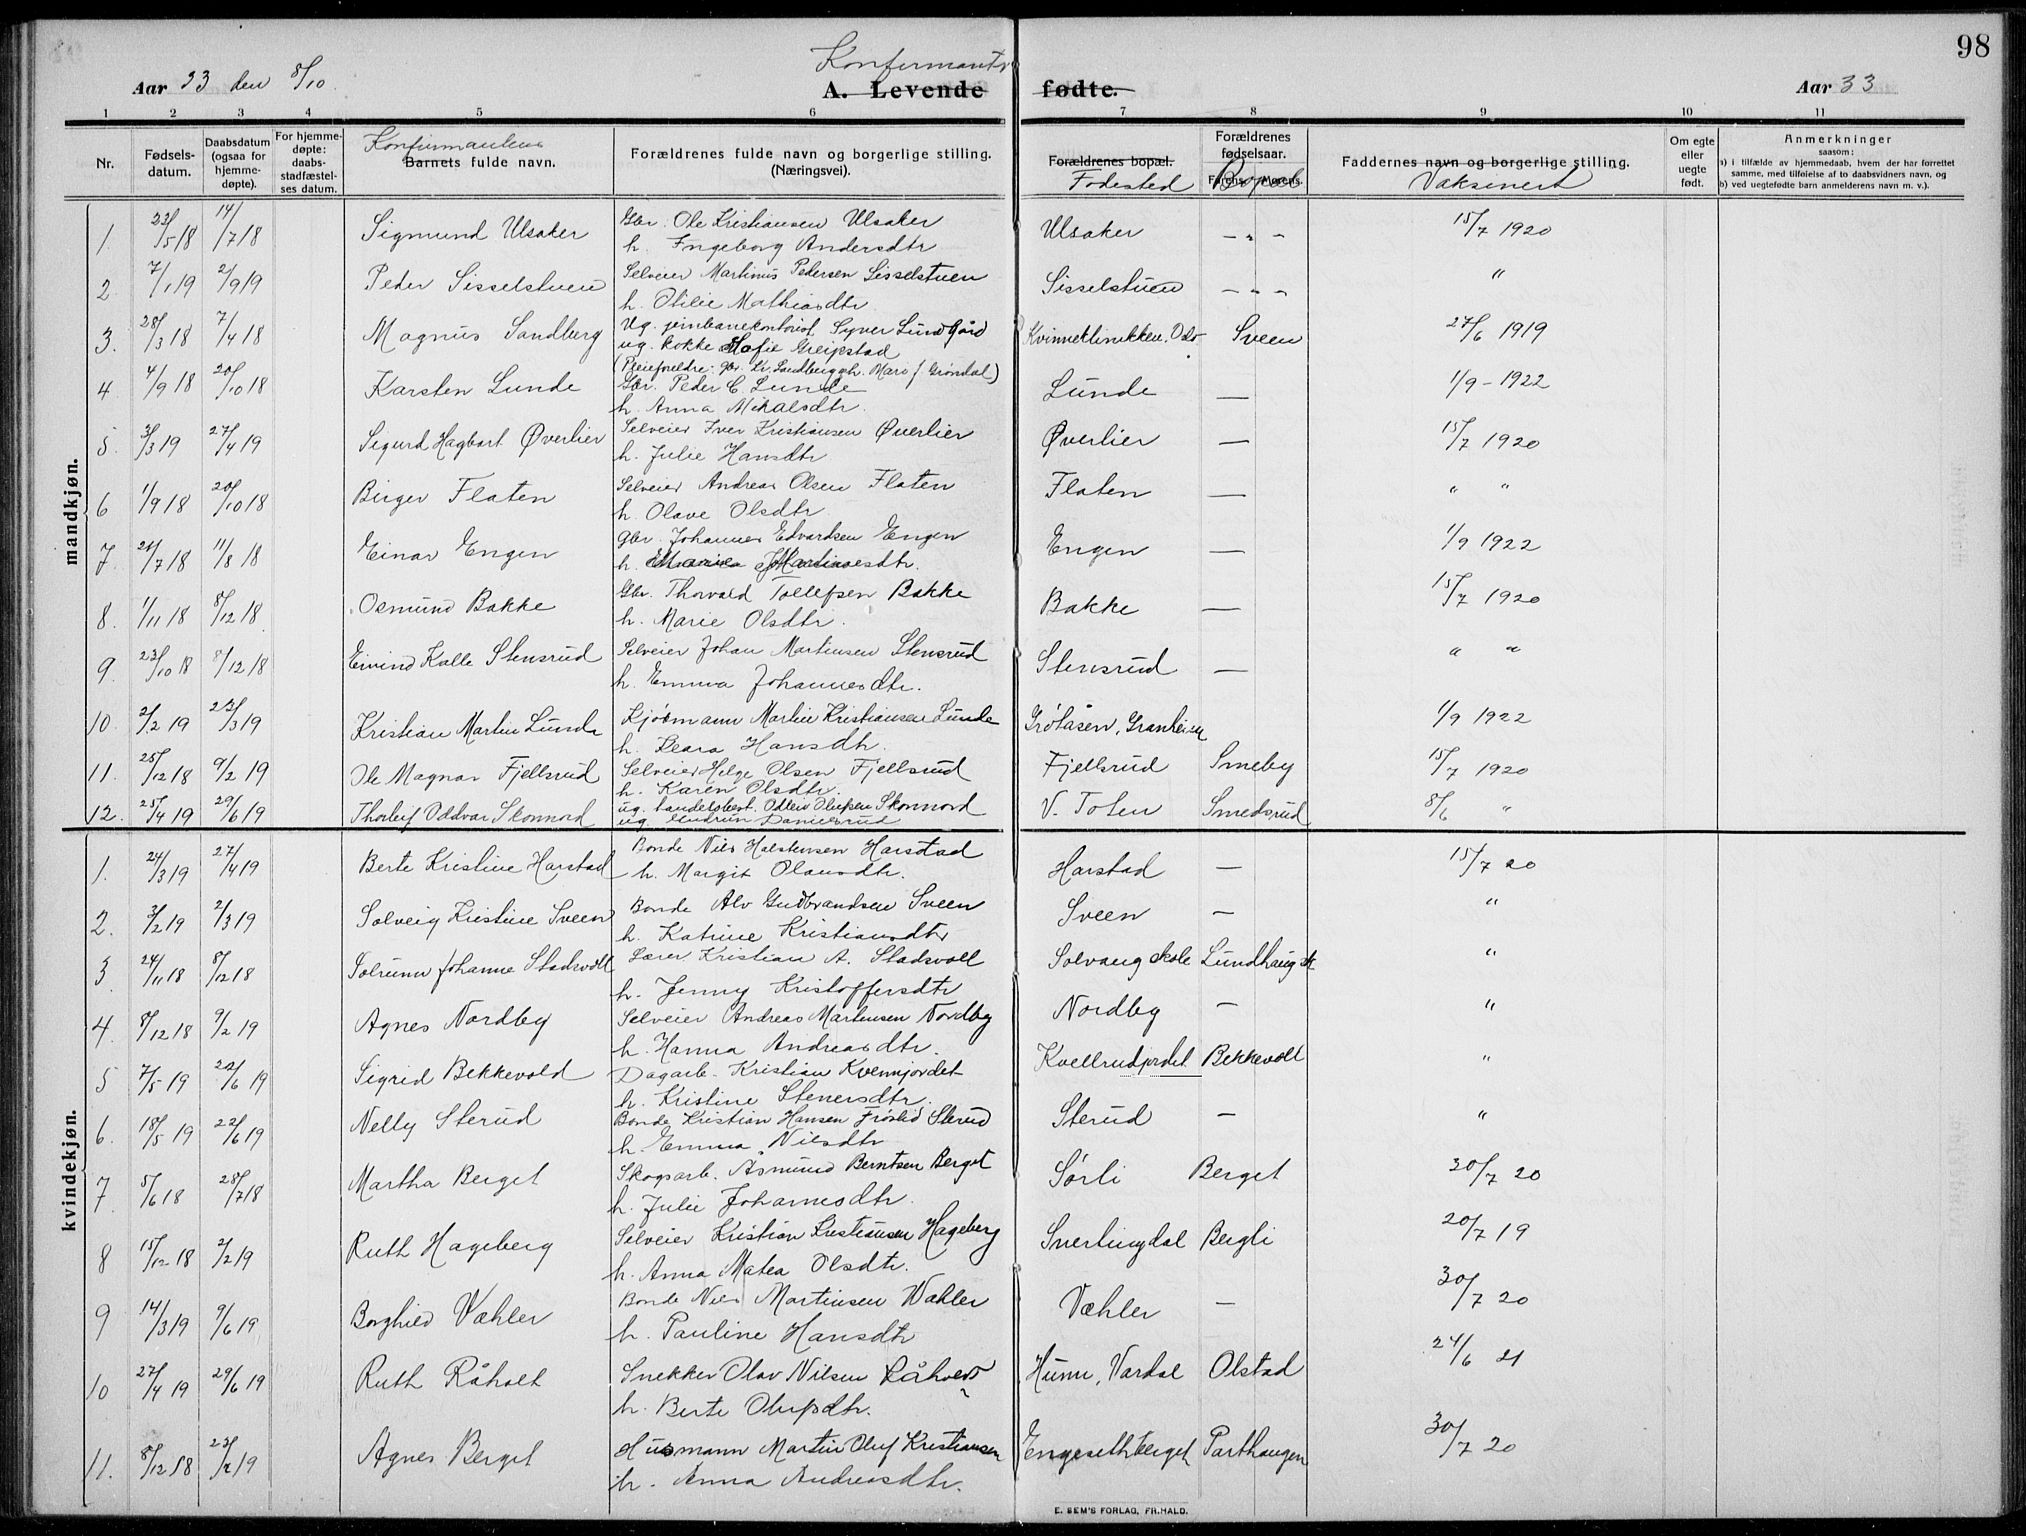 98
Konfirmanter
Aar 33 den 8/10.
A. Levende fødte.
Aar 33
1 2 3 4 5 6 7 8 9 10 11
Nr.
Fødsels-
datum.
Daabsdatum
(ogsaa for
hjemme-
døpte).
For hjemme-
døpte:
daabs-
stadfæstel-
ses datum.
Konfirmantens
Barnets fulde navn.
Forældrenes fulde navn og borgerlige stilling.
(Næringsvei).
Forældrenes bopæl.
Fødested
Forældrenes
fødselsaar.
Farens. Morens.
Bopæl
Faddernes navn og borgerlige stilling.
Vaksinert
Om egte
eller
uegte
født.
Anmerkninger
saasom:
a) i tilfælde av hjemmedaab, hvem der har forrettet
samme, med tilføielse af to daabsvidners navn, og
b) ved uegtefødte barn anmelderens navn m. v.).
mandkjøn.
1. 23/5 18 14/7 18 Sigmund Ulsaker Gbr. Ole Kristiansen Ulsaker Ulsaker – " – 15/7 1920
h. Ingeborg Andersdtr
2. 7/1 19 2/9 19 Peder Sisselstuen Selveier Martinus Pedersen Sisselstuen Sisselstuen – " – "
h. Otilie Mathiasdtr
3. 28/3 18 7/4 18 Magnus Sandberg Ug. jernbanekontorist Syver Lundgård Kvinneklinikken, Oslo Sveen 27/6 1919
ug. kokke Sofie Greipstad
(Pleieforeldre: gbr. Kr. Sandberg og h. Mari f. Grøndal)
4. 4/9 18 20/10 18 Karsten Lunde Gbr. Peder C. Lunde Lunde — 1/9 - 1922
h. Anna Mikalsdtr.
5. 31/3 19 27/4 19 Sigurd Hagbart Øverlier Selveier Iver Kristiansen Øverlier Øverlier — 15/7 1920
h. Julie Hansdtr
6 1/9 18 20/10 18 Birger Flaten Selveier Andreas Olsen Flaten Flaten — " "
h. Olave Olsdtr
7. 21/7 18 11/8 18 Einar Engen Gbr. Johannes Edvardsen Engen Engen — 1/9 1922
h. Marie Martinesdtr.
8. 1/11 18 8/12 18 Osmund Bakke Gbr. Thorvald Tollefsen Bakke Bakke — 15/7 1920
h. Marie Olsdtr.
9. 23/10 18 8/12 18 Eivind Kalle Stensrud Selveier Johan Martinsen Stensrud Stensrud — " "
h. Emma Johannesdtr.
10. 2/2 19 23/3 19 Kristian Martin Lunde Kjørmann Martin Kristiansen Lunde Grøtåsen, Granheim 1/9 1922
h. Klara Hansdtr.
11. 25/12 18 9/2 19 Ole Magnar Fjellsrud Selveier Helge Olsen Fjellsrud Fjellsrud Smeby 15/7 1920
h. Karen Olsdtr.
12. 25/4 19 29/6 19 Thorleif Oddvar Skonnord ug. handelsbest. Odleiv Olufsen Skonnord V. Toten Smedsrud 8/6 "
ug. Gudrun Danielsrud
kvindekjøn.
1. 24/3 19 27/4 19 Berte Kristine Harstad Bonde Nils Halstensen Harstad Harstad — 15/7 20
h. Margit Olausdtr.
2. 3/2 19 2/3 19 Solveig Kristine Sveen Bonde Alv Gudbrandsen Sveen Sveen — "
h. Katrine Kristiansdtr
3 24/11 18 8/12 18 Solrunn Johanne Stadsvoll Lærer Kristian A. Stadsvoll Solvang skole Lundhaug sk "
h. Jenny Kristoffersdtr
4. 8/12 18 9/2 19 Agnes Nordby Selveier Andreas Martinsen Nordby Nordby — "
h. Hanna Andreasdtr.
5 7/5 19 22/6 19 Sigrid Bekkevold Dagarb. Kristian Kvennjordet Kvellrudjordet Bekkevoll "
h. Kristine Stenersdtr.
6. 18/5 19 22/6 19 Nelly Sterud Bonde Kristian Hansen Frøslid Sterud Sterud — "
h. Emma Nilsdtr
7. 5/6 18 28/7 18 Martha Berget Skogsarb. Asmund Berntsen Berget Sørli Berget 30/7 20
h. Julie Johannesdtr.
8 15/12 18 2/2 19 Ruth Hageberg Selveier Kristian Kristiansen Hageberg Snertingdal Bergli 20/7 19
h. Anna Matea Olsdtr.
9 14/3 19 9/6 19 Borghild Væhler Bonde Nils Martinsen Wæhler Væhler — 30/7 20
h. Pauline Hansdtr
10 27/4 19 29/6 19 Ruth Råholt Snekker Olav Nilsen Råholt Hunn, Vardal Olstad 24/6 21
h. Berte Olufsdtr.
11. 8/12 18 23/2 19 Agnes Berget Husmann Martin Oluf Kristiansen Engesethberget Parthaugen 30/7 20
h. Anna Andreasdtr.
E. SEM'S FORLAG, FR.HALD.